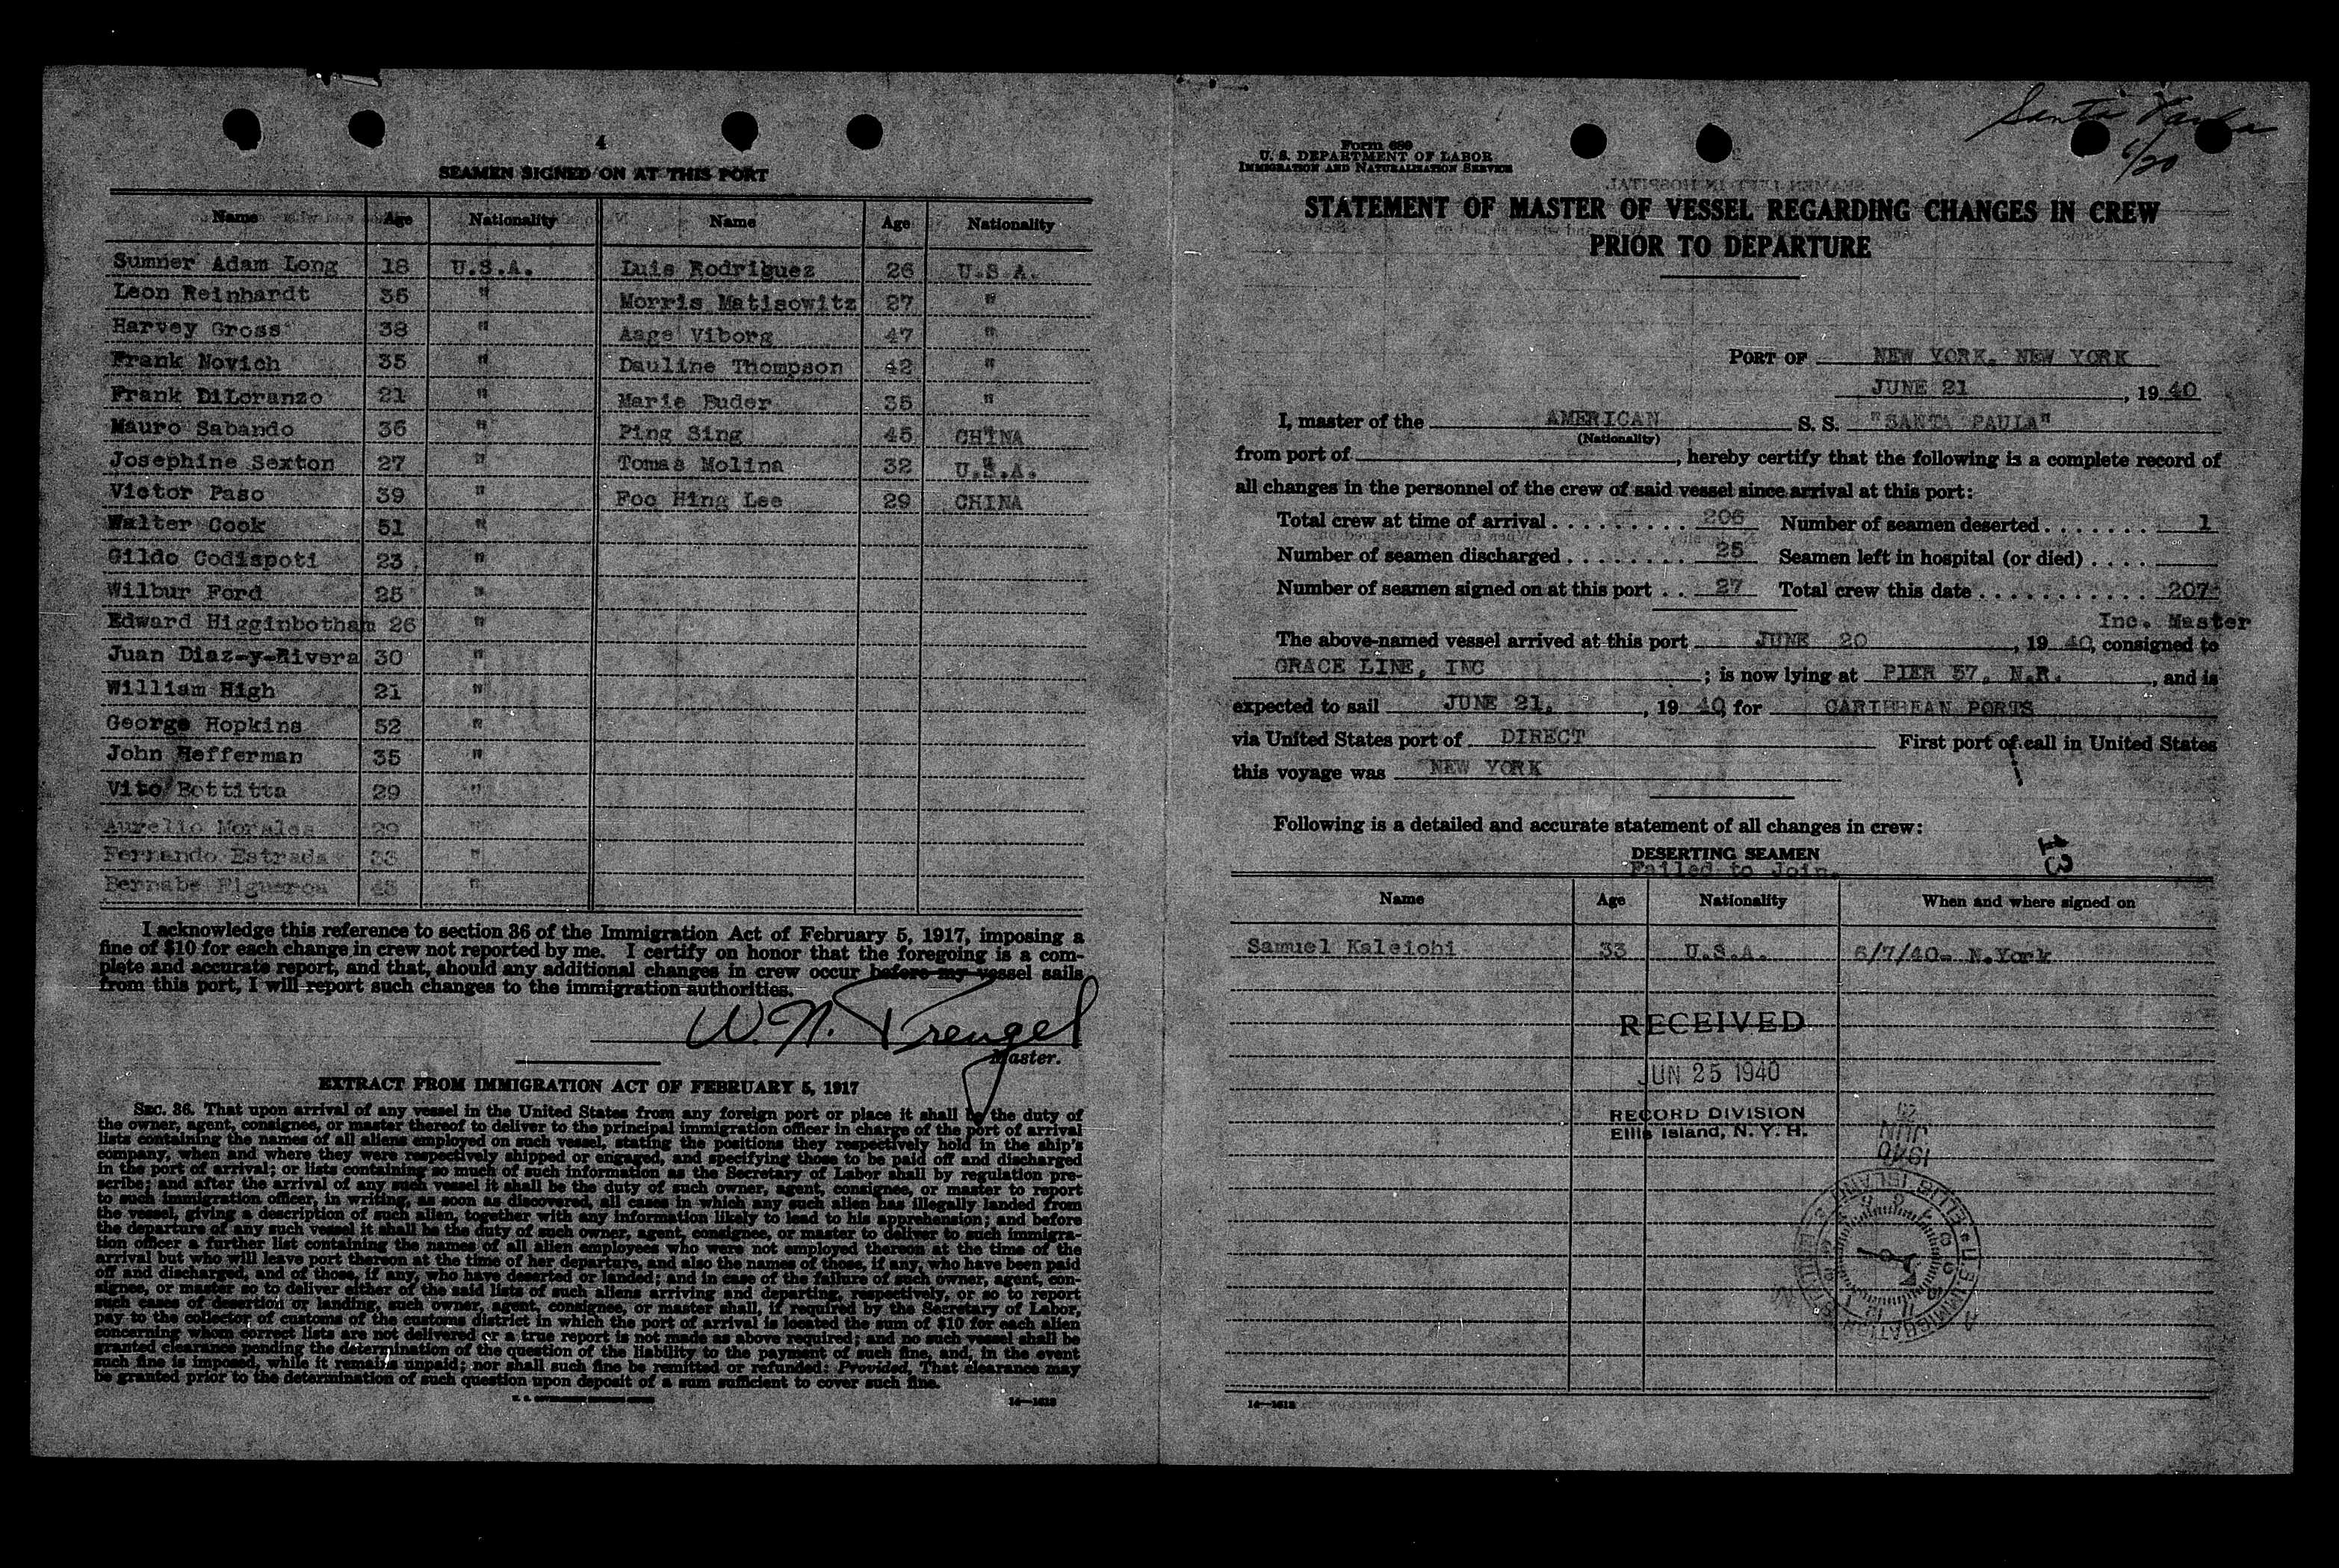 4
SEAMEN SIGNED ON AT THIS PORT
Name Age Nationality Name Age Nationality
Sumner Adam Long 18 U.S.A. Luis Rodriguez 26 U.S.A.
Leon Reinhardt 36 " Morris Matisowitz 27 "
Harvey Gross 38 " Aage Viborg 47 "
Frank Novich 35 " Dauline Thompson 42 "
Frank DiLoranzo 21 " Marie Buder 35 "
Mauro Sabando 36 " Ping Sing 45 CHINA
Josephine Sexton 27 " Tomas Molina 32 U.S.A.
Victor Paso 39 " Foo Hing Lee 29 CHINA
Walter Cook 51 "
Gildo Codispoti 23 "
Wilbur Ford 25 "
Edward Higginbotham 26 "
Juan Diaz-y-Rivera 30 "
William High 21 "
George Hopkins 52 "
John Hefferman 35 "
Vito Bottitta 29 "
Aurelio Morales 29 "
Fernando Estrada 33 "
Bernabe Figueroa 43 "
I acknowledge this reference to section 36 of the Immigration Act of February 5, 1917, imposing a
fine of $10 for each change in crew not reported by me. I certify on honor that the foregoing is a com-
plete and accurate report, and that, should any additional changes in crew occur before my vessel sails
from this port, I will report such changes to the immigration authorities.
W. N. Prengel
Master.
EXTRACT FROM IMMIGRATION ACT OF FEBRUARY 5, 1917
SEC. 36. That upon arrival of any vessel in the United States from any foreign port or place it shall be the duty of
the owner, agent, consignee, or master thereof to deliver to the principal immigration officer in charge of the port of arrival
lists containing the names of all aliens employed on such vessel, stating the positions they respectively hold in the ship's
company, when and where they were respectively shipped or engaged, and specifying those to be paid off and discharged
in the port of arrival; or lists containing so much of such information as the Secretary of Labor shall by regulation pre-
scribe; and after the arrival of any such vessel it shall be the duty of such owner, agent, consignee, or master to report
to such immigration officer, in writing, as soon as discovered, all cases in which any such alien has illegally landed from
the vessel, giving a description of such alien, together with any information likely to lead to his apprehension; and before
the departure of any such vessel it shall be the duty of such owner, agent, consignee, or master to deliver to such immigra-
tion officer a further list containing the names of all alien employees who were not employed thereon at the time of the
arrival but who will leave port thereon at the time of her departure, and also the names of those, if any, who have been paid
off and discharged, and of those, if any, who have deserted or landed; and in case of the failure of such owner, agent, con-
signee, or master so to deliver either of the said lists of such aliens arriving and departing, respectively, or so to report
such cases of desertion or landing, such owner, agent, consignee, or master shall, if required by the Secretary of Labor,
pay to the collector of customs of the customs district in which the port of arrival is located the sum of $10 for each alien
concerning whom correct lists are not delivered or a true report is not made as above required; and no such vessel shall be
granted clearance pending the determination of the question of the liability to the payment of such fine, and, in the event
such fine is imposed, while it remains unpaid; nor shall such fine be remitted or refunded: Provided, That clearance may
be granted prior to the determination of such question upon deposit of a sum sufficient to cover such fine.
14—1613
Santa Paula
6/20
Form 689
U. S. DEPARTMENT OF LABOR
IMMIGRATION AND NATURALIZATION SERVICE
STATEMENT OF MASTER OF VESSEL REGARDING CHANGES IN CREW
PRIOR TO DEPARTURE
PORT OF NEW YORK, NEW YORK
JUNE 21, 1940
I, master of the AMERICAN S. S. "SANTA PAULA"
(Nationality)
from port of , hereby certify that the following is a complete record of
all changes in the personnel of the crew of said vessel since arrival at this port:
Total crew at time of arrival . . . . . . . . . 206 Number of seamen deserted . . . . . . . 1
Number of seamen discharged . . . . . . . . 25 Seamen left in hospital (or died) . . . .
Number of seamen signed on at this port . . 27 Total crew this date . . . . . . . . . . . 207
Inc. Master
The above-named vessel arrived at this port JUNE 20, 1940, consigned to
GRACE LINE, INC ; is now lying at PIER 57, N.R. , and is
expected to sail JUNE 21, , 1940, for CARIBBEAN PORTS
via United States port of DIRECT First port of call in United States
this voyage was NEW YORK
Following is a detailed and accurate statement of all changes in crew:
13
DESERTING SEAMEN
Failed to Join.
Name Age Nationality When and where signed on
Samuel Kaleiohi 33 U.S.A. 6/7/40- N.York
RECEIVED
JUN 25 1940
RECORD DIVISION
Ellis Island, N. Y. H.
JUN
1940
ELLIS ISLAND
14—1613